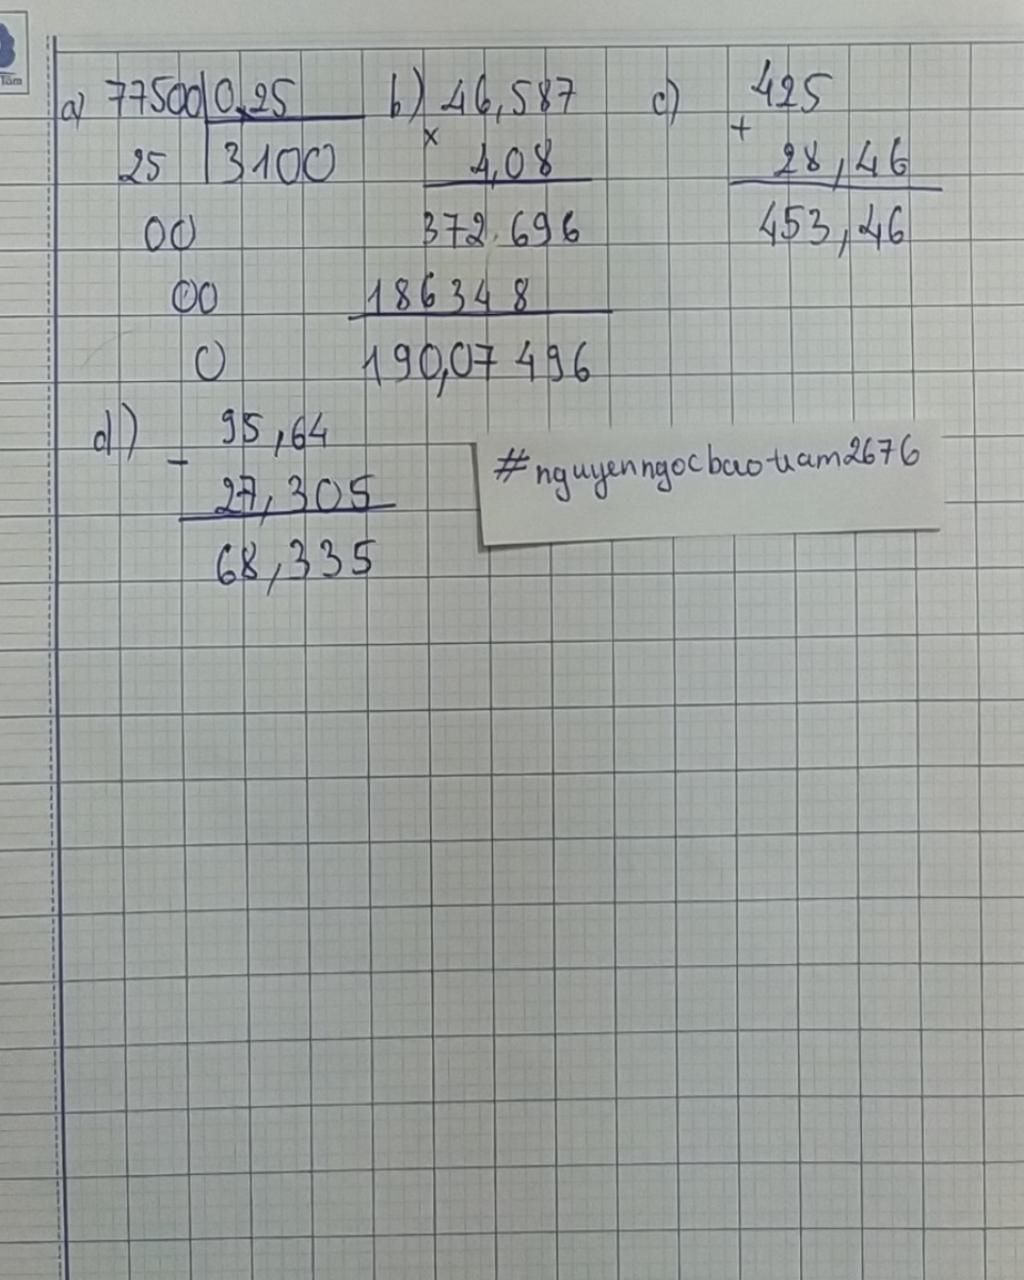 Tâm
a) 77500 0,25
25 3100
00
00
0
b) 46,587
×
4,08
372.696
186348
190,07496
c) 425
+
28,46
453,46
d) 95,64
-
27,305
68,335
#nguyenngocbaotram2676